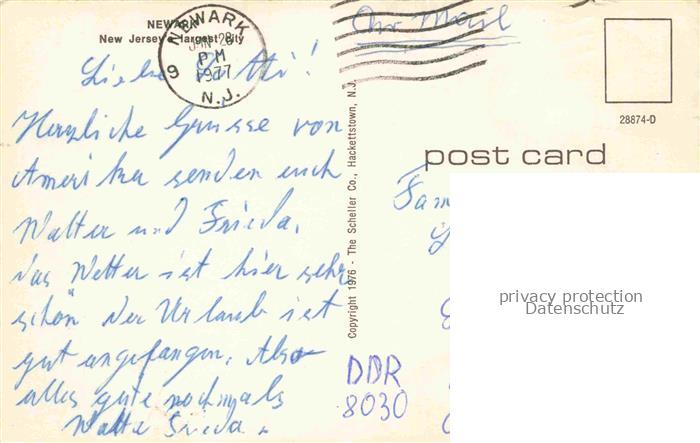 NEWARK
New Jersey's largest City
NEWARK
JAN 28
PM
1977
9
N.J.
Air Mail
28874-D
post card
Liebe !
Herzliche Grüsse von
Amerika senden euch
Walter und Frieda.
das Wetter ist hier sehr
schön der Urlaub ist
gut angefangen. Also
alles gute nochmals
Walter Frieda.
Copyright 1976 - The Scheller Co., Hackettstown, N.J.
Fam
DDR
8030
privacy protection
Datenschutz